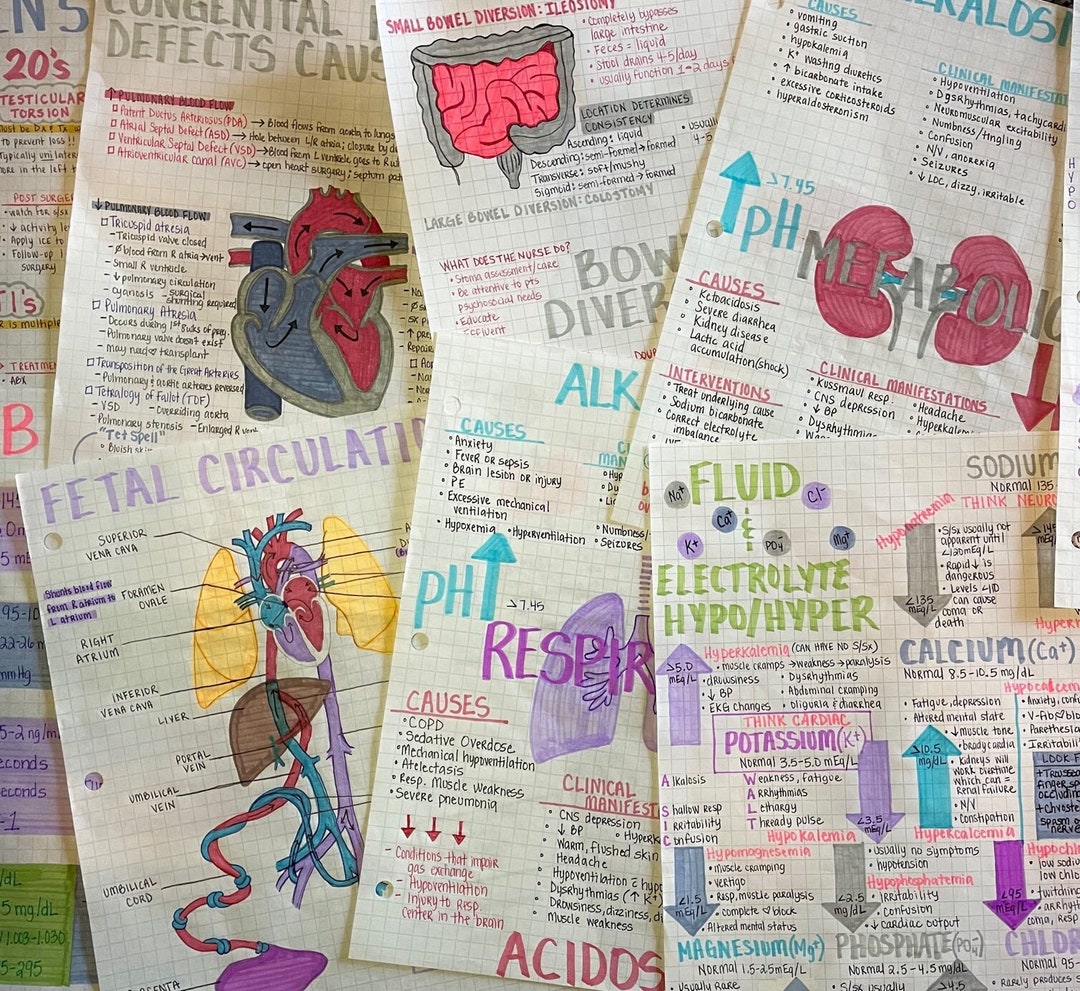 20's
TESTICULAR
TORSION
to prevent loss!!
POST SURGER
Follow-up i
surgery
TI's
R is multiple
TREATMEN
ABX
B
CONGENITAL
DEFECTS CAUS
↑ PULMONARY BLOOD FLOW
□ Patent Ductus Arteriosus (PDA) → Blood flows from aorta to lungs
□ Atrial Septal Defect (ASD) → Hole between L/R atria; closure by d
□ Ventricular Septal Defect (VSD) → Blood from L ventricle goes to R v
□ Atrioventricular canal (AVC) → open heart surgery; septum pat
↓ PULMONARY BLOOD FLOW
□ Tricuspid atresia
- Tricuspid valve closed
- Ø blood from R atria → vent
- Small R ventricle
- ↓ pulmonary circulation
- cyanosis - surgical
shunting required
□ Pulmonary Atresia
- Occurs during 1st 8wks of preg.
- Pulmonary valve doesn't exist
- May need ♡ transplant
□ Transposition of the Great Arteries
- Pulmonary & aortic arteries reversed
□ Tetralogy of Fallot (TOF)
- VSD - Overriding aorta
- Pulmonary stenosis - Enlarged R vent
"Tet Spell"
SMALL BOWEL DIVERSION: ILEOSTOMY
• Completely bypasses
large intestine
• Feces = liquid
• Stool drains 4-5/day
• usually function 1-2 days
LOCATION DETERMINES
CONSISTENCY
Ascending: Liquid
Descending: semi-formed → formed
Transverse: soft/mushy
Sigmoid: semi-formed → formed
• usual
4-5
LARGE BOWEL DIVERSION: COLOSTOMY
WHAT DOES THE NURSE DO?
• Stoma assessment/care
• Be attentive to pts
psychosocial needs
• Educate
BOW
DIVER
CAUSES
• vomiting
• gastric suction
• hypokalemia
• K+ wasting diuretics
• ↑ bicarbonate intake
• excessive corticosteroids
• hyperaldosteronism
CLINICAL MANIFESTAT
• Hypoventilation
• Dysrhythmias, tachycardi
• Neuromuscular excitability
• Numbness/tingling
• Confusion
• N/V, anorexia
• Seizures
• ↓ LOC, dizzy, irritable
>7.45
pH
METABOLIC
CAUSES
• Ketoacidosis
• Severe diarrhea
• Kidney disease
• Lactic acid
accumulation (shock)
INTERVENTIONS
• Treat underlying cause
• Sodium bicarbonate
• Correct electrolyte
imbalance
CLINICAL MANIFESTATIONS
• Kussmaul Resp.
• CNS depression
• ↓ BP
• Dysrhythmias
• Headache
• Hyperkale
FETAL CIRCULATI
SUPERIOR
VENA CAVA
Shunts blood flow
from R atrium to
L atrium
FORAMEN
OVALE
RIGHT
ATRIUM
INFERIOR
VENA CAVA
LIVER
PORTAL
VEIN
UMBILICAL
VEIN
UMBILICAL
CORD
ACENTA
ALK
CAUSES
• Anxiety
• Fever or sepsis
• Brain lesion or injury
• PE
• Excessive mechanical
ventilation
• Hypoxemia • Hyperventilation
• Numbness/
• Seizures
pH
>7.45
RESPIR
CAUSES
• COPD
• Sedative Overdose
• Mechanical hypoventilation
• Atelectasis
• Resp. Muscle Weakness
• Severe pneumonia
- Conditions that impair
gas exchange
- Hypoventilation
- Injury to Resp.
Center in the brain
CLINICAL
MANIFEST
• CNS depression
• ↓ BP
• Hyperk
• Warm, flushed skin
• Headache
• Hypoventilation
• Dysrhythmias (↑ K+)
• Drowsiness, dizziness, d
• muscle weakness
ACIDOS
FLUID
&
ELECTROLYTE
HYPO/HYPER
Na+
Cl-
Ca+
K+
PO4
Mg+
SODIUM
Normal 135
THINK NEURO
Hyponatremia
<135
mEq/L
• S/sx usually not
apparent until
<120mEq/L
• Rapid ↓ is
dangerous
• Levels <110
can cause
coma or
death
Hyperkalemia (CAN HAVE NO S/SX)
>5.0
mEq/L
• muscle cramps → weakness → paralysis
• drowsiness
• ↓ BP
• EKG changes
• Dysrhythmias
• Abdominal cramping
• oliguria & diarrhea
THINK CARDIAC
POTASSIUM (K+)
Normal 3.5-5.0 mEq/L
Alkalosis
Shallow Resp
Irritability
Confusion
Weakness, fatigue
Arrhythmias
Lethargy
Thready pulse
<3.5
mEq/L
Hypokalemia
CALCIUM (Ca+)
Normal 8.5-10.5 mg/dL
• Fatigue, depression
• Altered mental state
• ↓ muscle tone
• bradycardia
• Kidneys will
work overtime
which can =
renal failure
• N/V
• Constipation
>10.5
mg/dL
Hypercalcemia
Hypocalcem
• Anxiety, conf
• Paresthesia
• Irritabili
LOOK F
Hypomagnesemia
<1.5
mEq/L
• muscle cramping
• vertigo
• Resp. muscle paralysis
• complete ♡ block
• Altered mental status
MAGNESIUM (Mg+)
Normal 1.5-2.5mEq/L
• usually rare
• usually no symptoms
• hypotension
Hypophosphatemia
• irritability
• confusion
• ↓ cardiac output
<2.5
mg/dL
PHOSPHATE (PO4)
Normal 2.5-4.5mg/dL
• S/sx usually
>4.5
Hypochl
<95
mEq/L
• low sodiu
• twitching
• arrhyth
coma, resp
CHLOR
Normal 95-
• Rarely produces s